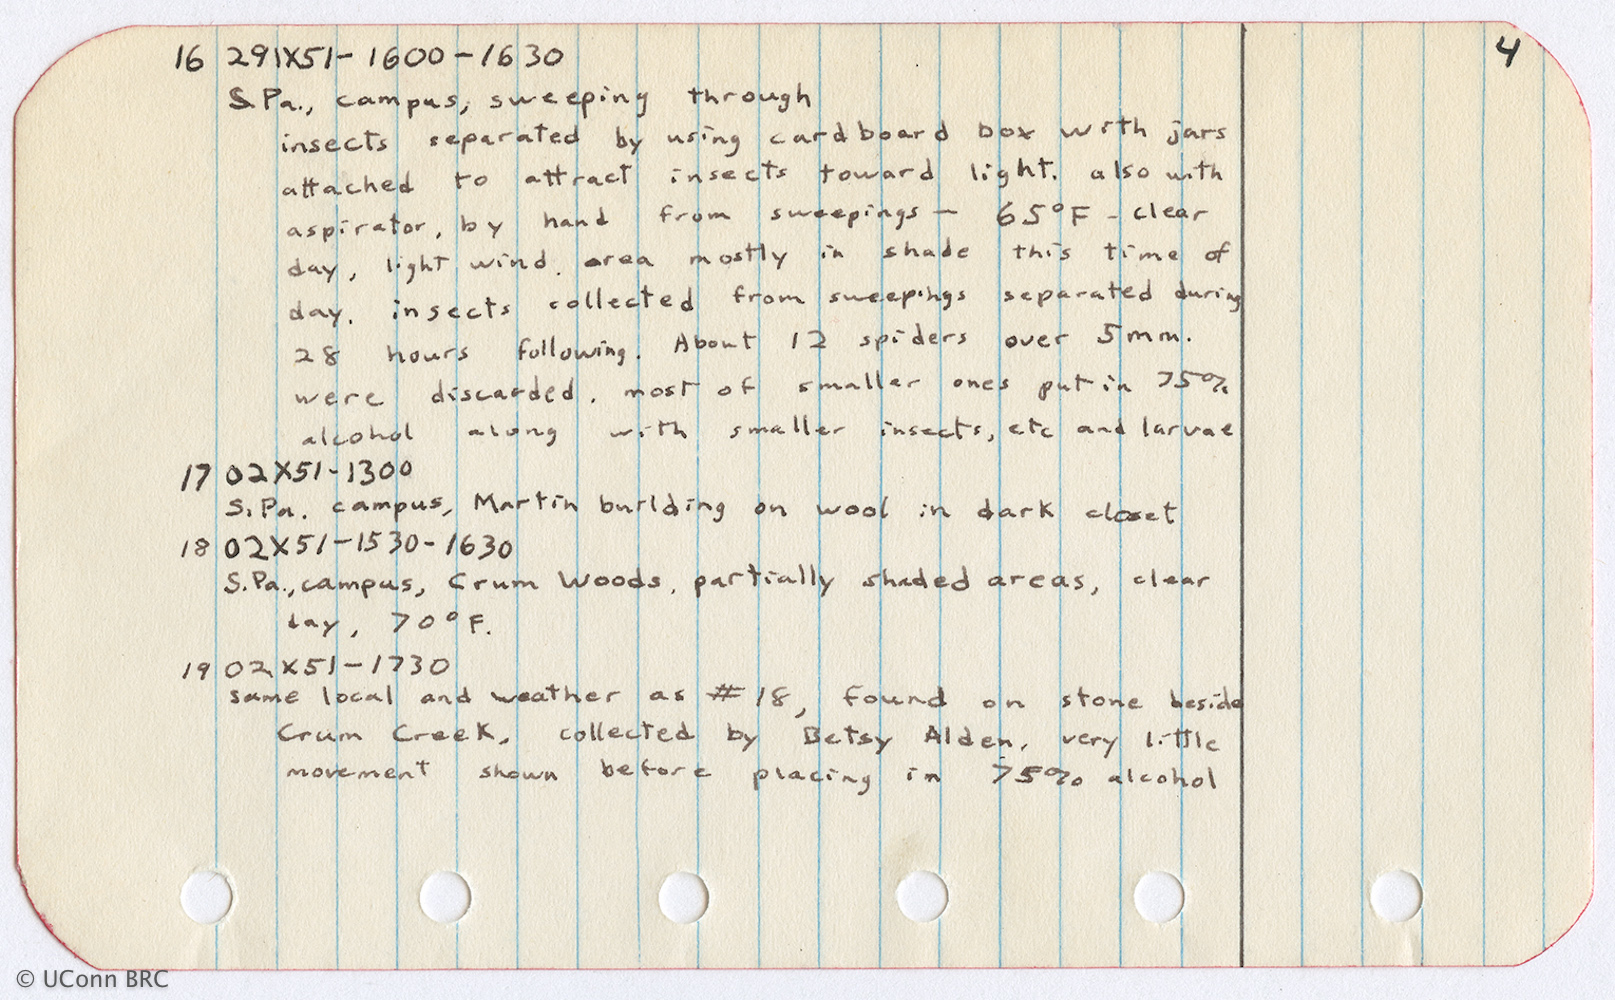 4
16 291X51-1600-1630
S.Pa., campus, sweeping through
insects separated by using cardboard box with jars
attached to attract insects toward light. also with
aspirator, by hand from sweepings - 65°F - clear
day, light wind. area mostly in shade this time of
day. insects collected from sweepings separated during
28 hours following. About 12 spiders over 5mm.
were discarded. most of smaller ones put in 75%
alcohol along with smaller insects, etc and larvae
17 02X51-1300
S.Pa. campus, Martin building on wool in dark closet
18 02X51-1530-1630
S.Pa., campus, Crum Woods, partially shaded areas, clear
day, 70°F.
19 02X51-1730
same local and weather as #18, found on stone beside
Crum Creek, collected by Betsy Alden, very little
movement shown before placing in 75% alcohol
© UConn BRC